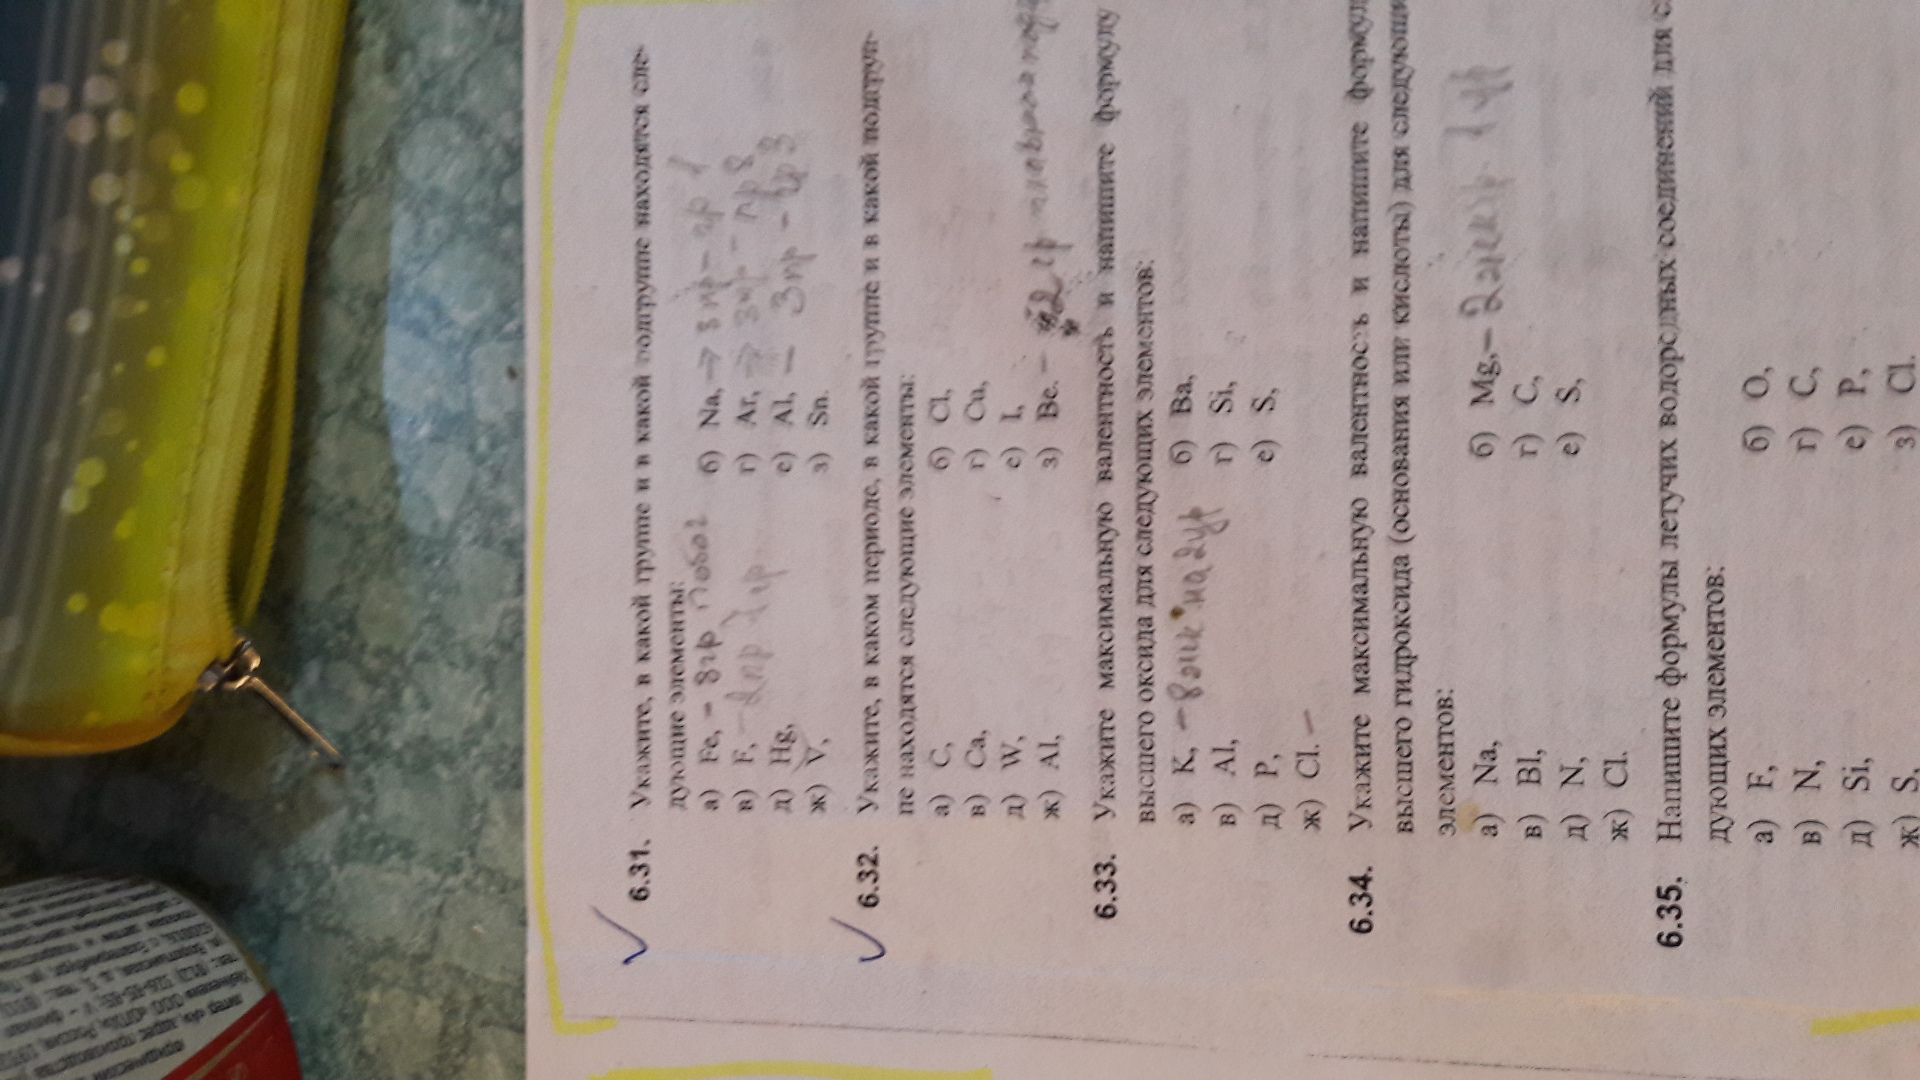 6.31. Укажите, в какой группе и в какой подгруппе находятся сле-
дующие элементы:
а) Fe, - 8 гр побоч
б) Na, → 3 пр - гр 1
в) F, - 2 пр 7 гр
г) Ar, → 3 пр - гр 8
д) Hg,
е) Al, — 3 пр - гр 3
ж) V,
з) Sn.
6.32. Укажите, в каком периоде, в какой группе и в какой подгруп-
пе находятся следующие элементы:
а) C,
б) Cl,
в) Ca,
г) Cu,
д) W,
е) I,
ж) Al,
з) Be. - 2 гр
6.33. Укажите максимальную валентность и напишите формулу
высшего оксида для следующих элементов:
а) K, - на
б) Ba,
в) Al,
г) Si,
д) P,
е) S,
ж) Cl. -
6.34. Укажите максимальную валентность и напишите формул
высшего гидроксида (основания или кислоты) для следующи
элементов:
а) Na,
б) Mg, - 2
в) Bl,
г) C,
д) N,
е) S,
ж) Cl.
6.35. Напишите формулы летучих водородных соединений для с
дующих элементов:
а) F,
б) O,
в) N,
г) C,
д) Si,
е) P,
ж) S,
з) Cl.